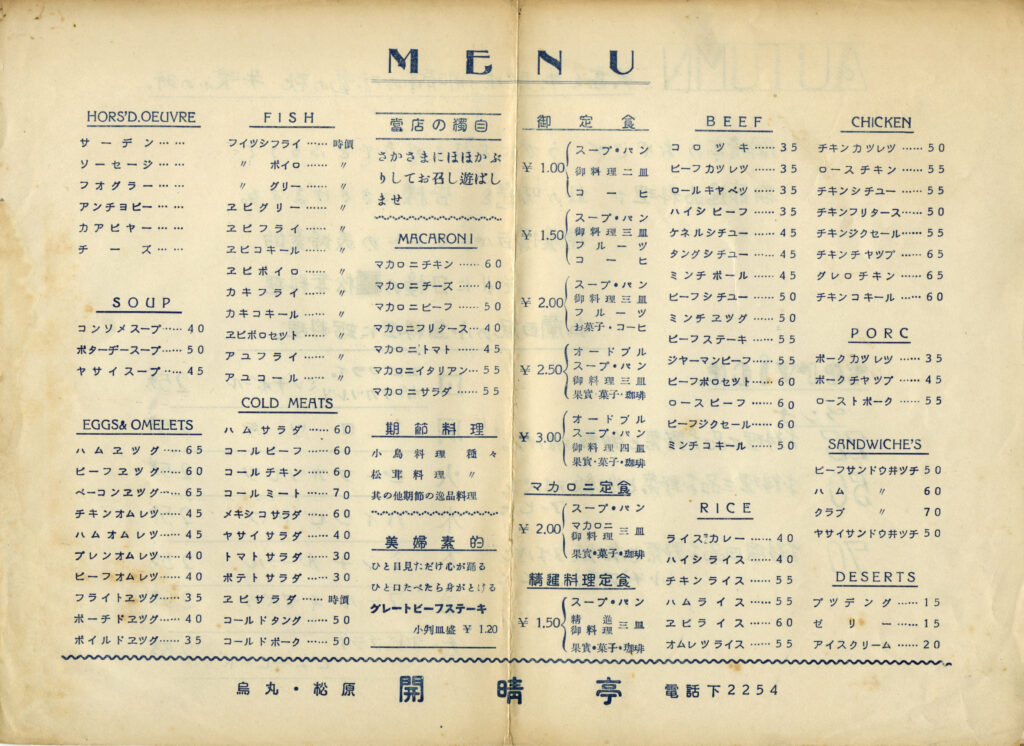 MENU
HORS'D.OEUVRE
サーデン……
ソーセージ……
フオグラー……
アンチヨビー……
カアビヤー……
チーズ……
SOUP
コンソメスープ……40
ポターヂースープ……50
ヤサイスープ……45
EGGS&OMELETS
ハムヱツグ……65
ビーフヱツグ……60
ベーコンヱツグ……65
チキンオムレツ……45
ハムオムレツ……45
プレンオムレツ……40
ビーフオムレツ……40
フライトヱツグ……35
ポーチドヱツグ……40
ボイルドヱツグ……35
FISH
フイツシフライ……時價
〃 ボイロ……〃
〃 グリー……〃
ヱビグリー……〃
ヱビフライ……〃
ヱビコキール……〃
ヱビボイロ……〃
カキフライ……〃
カキコキール……〃
ヱビポロセツト……〃
アユフライ……〃
アユコール……〃
COLD MEATS
ハムサラダ……60
コールビーフ……60
コールチキン……60
コールミート……70
メキシコサラダ……60
ヤサイサラダ……40
トマトサラダ……30
ポテトサラダ……30
ヱビサラダ……時價
コールドタング……50
コールドポーク……50
當店の獨白
さかさまにほほかぶ
りしてお召し遊ばし
ませ
MACARONI
マカロニチキン……60
マカロニチーズ……40
マカロニビーフ……50
マカロニフリタース……40
マカロニトマト……45
マカロニイタリアン……55
マカロニサラダ……55
期節料理
小鳥料理 種々
松茸料理 〃
其の他期節の逸品料理
美婦素的
ひと目見ただけ心が踊る
ひと口たべたら身がとける
グレートビーフステーキ
小判皿盛 ¥1.20
御定食
¥1.00
スープ・パン
御料理二皿
コーヒ
¥1.50
スープ・パン
御料理三皿
フルーツ
コーヒ
¥2.00
スープ・パン
御料理三皿
フルーツ
お菓子・コーヒ
¥2.50
オードブル
スープ・パン
御料理三皿
果實・菓子・珈琲
¥3.00
オードブル
スープ・パン
御料理四皿
果實・菓子・珈琲
マカロニ定食
¥2.00
スープ・パン
マカロニ
御料理 三皿
果實・菓子・珈琲
精進料理定食
¥1.50
スープ・パン
精進
御料理 三皿
果實・菓子・珈琲
BEEF
コロツキ……35
ビーフカツレツ……35
ロールキヤベツ……35
ハイシビーフ……35
ケネルシチユー……45
タングシチユー……45
ミンチボール……45
ビーフシチユー……50
ミンチヱツグ……50
ビーフステーキ……55
ジヤーマンビーフ……55
ビーフポロセツト……60
ロースビーフ……60
ビーフジクセール……60
ミンチコキール……50
RICE
ライスカレー……40
ハイシライス……40
チキンライス……55
ハムライス……55
ヱビライス……60
オムレツライス……55
CHICKEN
チキンカツレツ……50
ロースチキン……55
チキンシチユー……55
チキンフリタース……50
チキンジクセール……55
チキンチヤツプ……65
グレロチキン……65
チキンコキール……60
PORC
ポークカツレツ……35
ポークチヤツプ……45
ローストポーク……55
SANDWICHE'S
ビーフサンドウ井ツチ50
ハム 〃 60
クラブ 〃 70
ヤサイサンドウ井ツチ50
DESERTS
プツデング……15
ゼリー……15
アイスクリーム……20
烏丸・松原 開晴亭 電話下2254